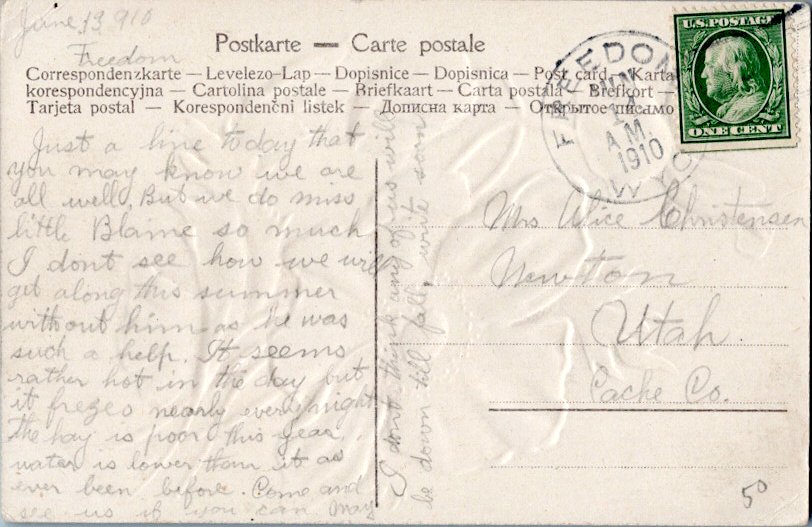 June 13, 910
Freedom
Postkarte — Carte postale
Correspondenzkarte — Levelezo-Lap — Dopisnice — Dopisnica — Post card — Karta
korespondencyjna — Cartolina postale — Briefkaart — Carta postala — Brefkort —
Tarjeta postal — Korespondenční listek — Дописна карта — Открытое письмо
U.S. POSTAGE
ONE CENT
FREEDOM
JUN
14
A.M.
1910
WYO
Just a line today that
you may know we are
all well, But we do miss
little Blame so much
I dont see how we will
get along this summer
without him as he was
such a help. It seems
rather hot in the day but
it frezes nearly every night
the hay is poor this year.
water is lower than it as
ever been before. Come and
see us if you can May
I dont think any of us will
be down till fall, write soon
Mrs Alice Christensen
Newton
Utah.
Cache Co.
50